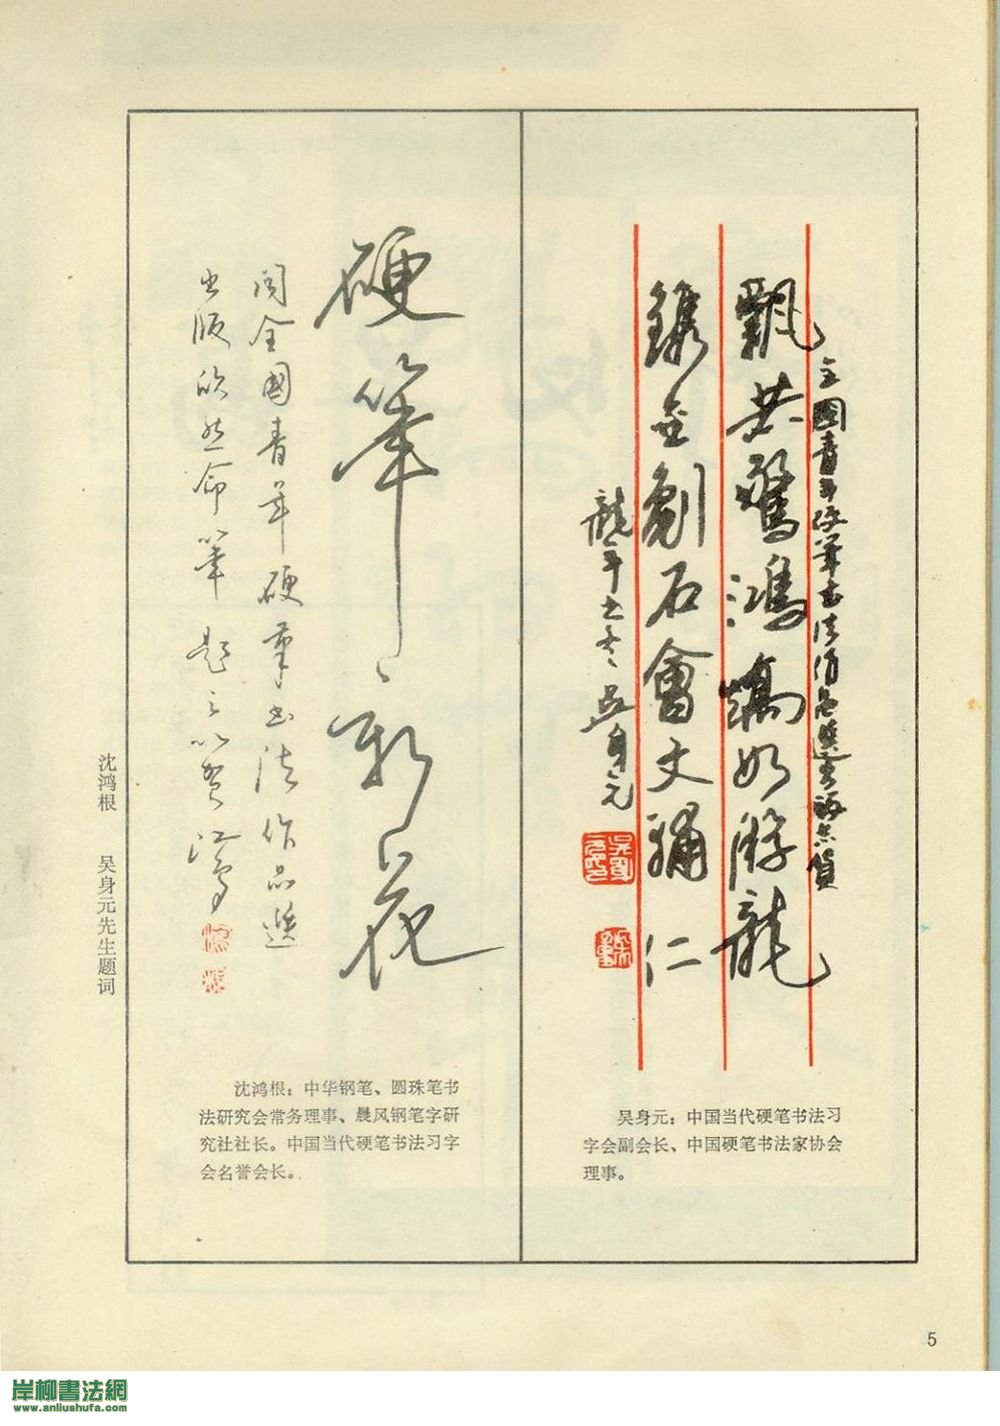 全国青年硬笔书法作品选出版志贺
飘若惊鸿矯如游龍
鐫金劃石會文輔仁
龍年之冬吴身元
硬筆新花
阅全國青年硬筆书法作品選
出版欣然命筆题之以贺
沈鸿根 吴身元先生题词
沈鸿根：中华钢笔、圆珠笔书
法研究会常务理事、晨风钢笔字研
究社社长。中国当代硬笔书法习字
会名誉会长。
吴身元：中国当代硬笔书法习
字会副会长、中国硬笔书法家协会
理事。
5
岸柳書法網
www.anliushufa.com